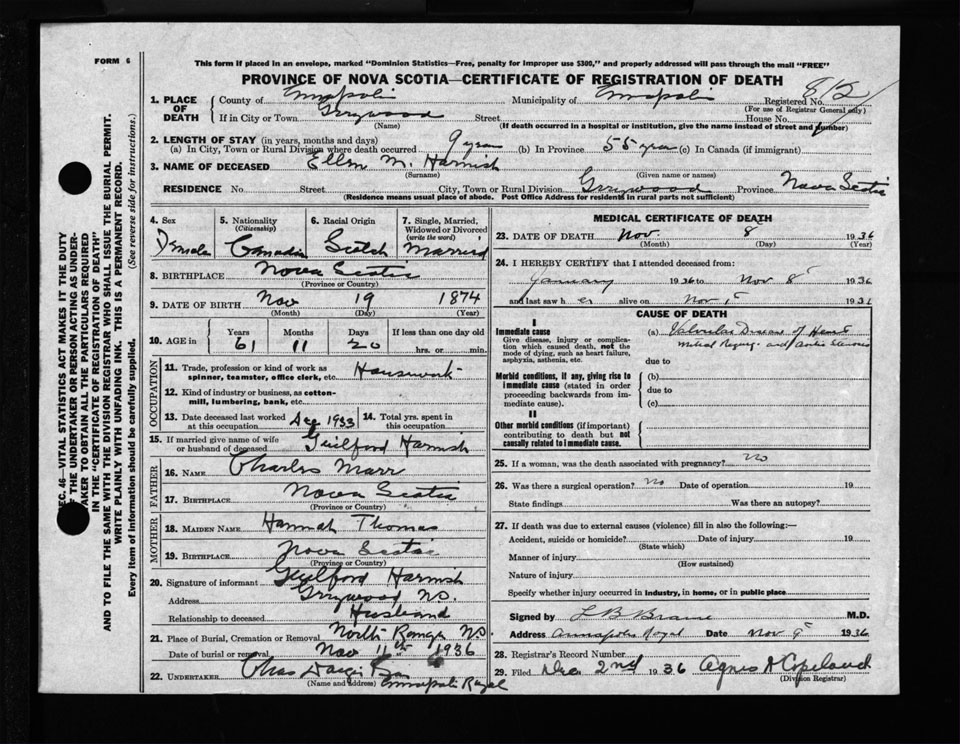 FORM 6
This form if placed in an envelope, marked "Dominion Statistics—Free, penalty for improper use $300," and properly addressed will pass through the mail "FREE"
PROVINCE OF NOVA SCOTIA—CERTIFICATE OF REGISTRATION OF DEATH
SEC. 46—VITAL STATISTICS ACT MAKES IT THE DUTY
OF THE UNDERTAKER OR PERSON ACTING AS UNDER-
TAKER TO OBTAIN ALL THE PARTICULARS REQUIRED
IN THE "CERTIFICATE OF REGISTRATION OF DEATH"
AND TO FILE THE SAME WITH THE DIVISION REGISTRAR WHO SHALL ISSUE THE BURIAL PERMIT.
WRITE PLAINLY WITH UNFADING INK. THIS IS A PERMANENT RECORD.
Every item of information should be carefully supplied. (See reverse side for instructions.)
1. PLACE OF DEATH
County of Annapolis Municipality of Annapolis Registered No. 815
(For use of Registrar General only)
If in City or Town Greywood Street House No.
(Name) (If death occurred in a hospital or institution, give the name instead of street and number)
2. LENGTH OF STAY (in years, months and days)
(a) In City, Town or Rural Division where death occurred 9 years (b) In Province 55 years (c) In Canada (if immigrant)
3. NAME OF DECEASED Ellen M. Harnish
(Surname) (Given name or names)
RESIDENCE No. Street City, Town or Rural Division Greywood Province Nova Scotia
(Residence means usual place of abode. Post Office Address for residents in rural parts not sufficient)
4. Sex Female
5. Nationality (Citizenship) Canadian
6. Racial Origin Scotch
7. Single, Married, Widowed or Divorced (write the word) Married
8. BIRTHPLACE Nova Scotia
(Province or Country)
9. DATE OF BIRTH Nov 19 1874
(Month) (Day) (Year)
10. AGE in Years 61 Months 11 Days 20 If less than one day
hrs. or min.
OCCUPATION
11. Trade, profession or kind of work as spinner, teamster, office clerk, etc. Housework
12. Kind of industry or business, as cotton-mill, lumbering, bank, etc.
13. Date deceased last worked at this occupation Dec 1933
14. Total yrs. spent in this occupation
15. If married give name of wife or husband of deceased Guilford Harnish
FATHER
16. NAME Charles Marr
17. BIRTHPLACE Nova Scotia
(Province or Country)
MOTHER
18. MAIDEN NAME Hannah Thomas
19. BIRTHPLACE Nova Scotia
(Province or Country)
20. Signature of informant Guilford Harnish
Address Greywood N.S.
Relationship to deceased Husband
21. Place of Burial, Cremation or Removal North Range N.S
Date of burial or removal Nov 11th 1936
22. UNDERTAKER Chas Dargie
(Name and address) Annapolis Royal
MEDICAL CERTIFICATE OF DEATH
23. DATE OF DEATH Nov. 8 1936
(Month) (Day) (Year)
24. I HEREBY CERTIFY that I attended deceased from:
January 1936 to Nov 8 1936
and last saw her alive on Nov 1936
CAUSE OF DEATH
I
Immediate cause
Give disease, injury or complica-
tion which caused death, not the
mode of dying, such as heart failure,
asphyxia, asthenia, etc.
(a) Valvular Disease of Heart
Mitral Regurg. and Aortic Stenosis
due to
Morbid conditions, if any, giving rise to
immediate cause (stated in order
proceeding backwards from im-
mediate cause).
(b)
due to
(c)
II
Other morbid conditions (if important)
contributing to death but not
causally related to immediate cause.
25. If a woman, was the death associated with pregnancy? no
26. Was there a surgical operation? no Date of operation 19
State findings Was there an autopsy?
27. If death was due to external causes (violence) fill in also the following:—
Accident, suicide or homicide? Date of injury 19
(State which)
Manner of injury
(How sustained)
Nature of injury
Specify whether injury occurred in industry, in home, or in public place
Signed by L B Braine M.D.
Address Annapolis Royal Date Nov 9 1936
28. Registrar's Record Number
29. Filed Dec. 2nd 1936 Agnes A Copeland
(Division Registrar)